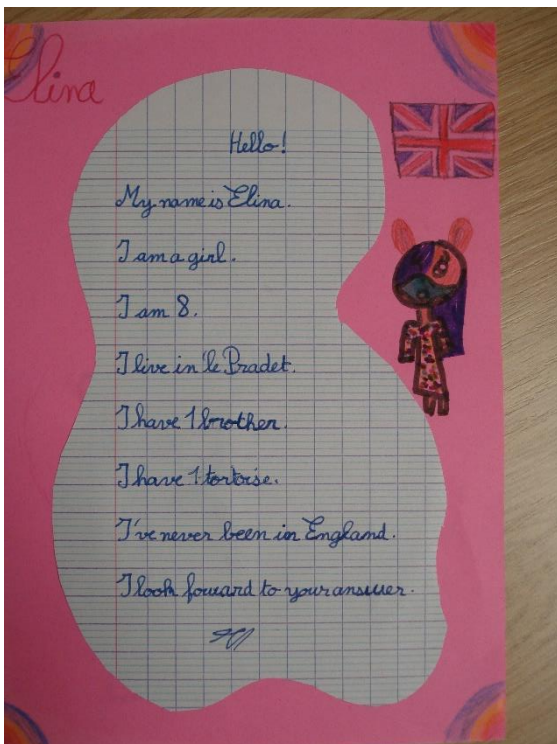 Elina
Hello!
My name is Elina.
I am a girl.
I am 8.
I live in le Pradet.
I have 1 brother.
I have 1 tortoise.
I've never been in England.
I look foward to your answer.